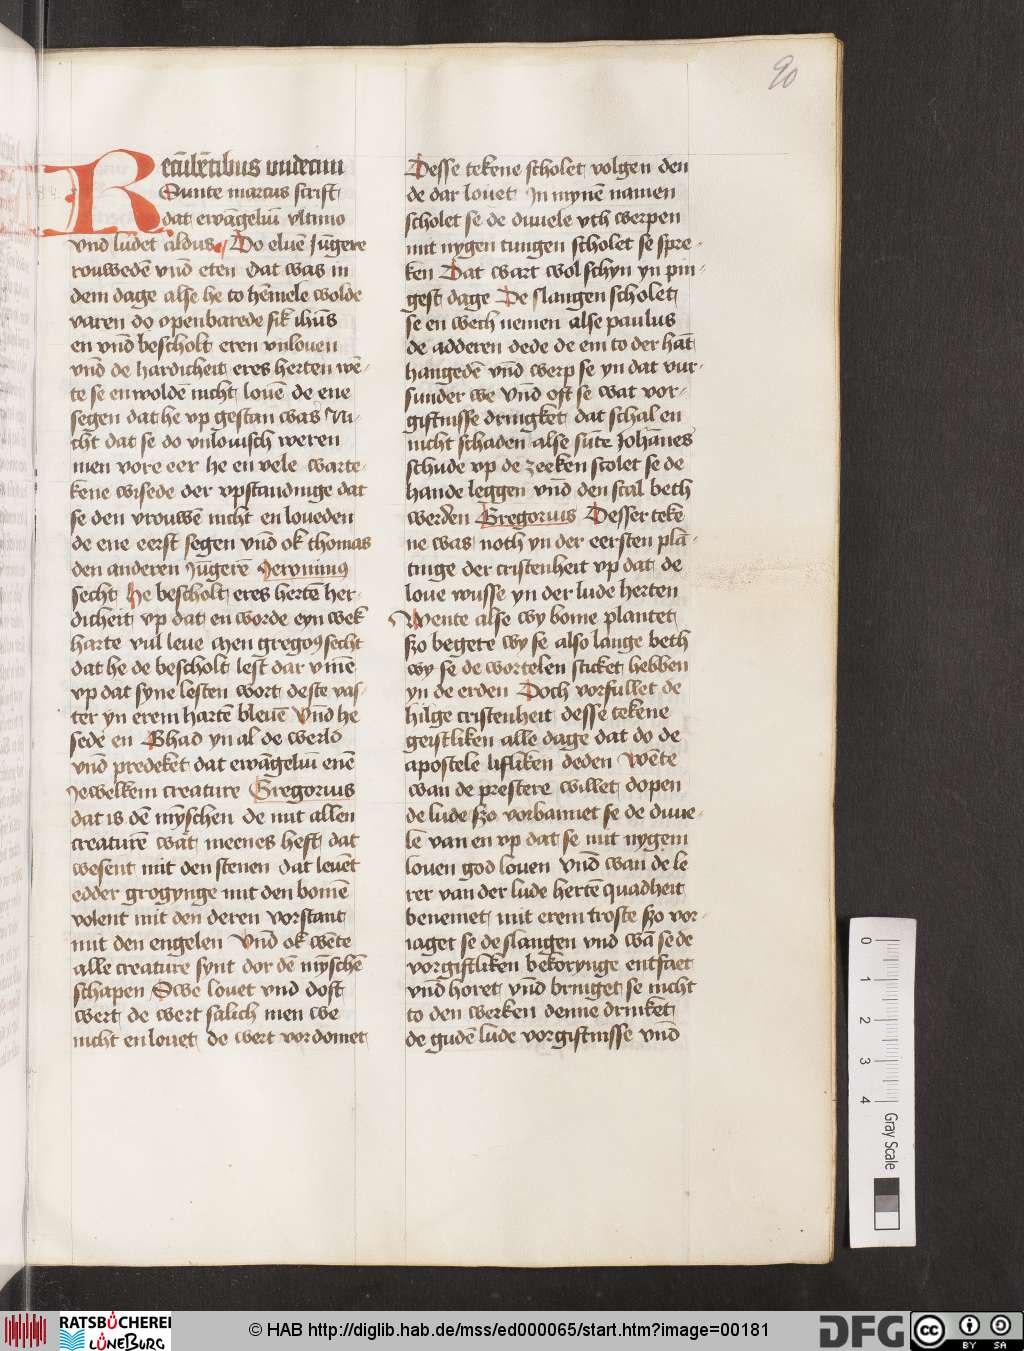 90
Recu̅be̅tibus vndecim
Sunte marcus scrift
dat ewa̅geliu̅ vltimo
vnd lu̅det aldus Do elue̅ Ju̅gere
rouwede̅ vn̅d eten Dat was in
dem dage alse he to he̅mele wolde
varen do openbarede sik ih̅us
en vn̅d bescholt eren vnlouen
vn̅d de hardicheit eres herten we̅-
te se en wolde̅ nicht loue̅ de ene
segen dat he vp gestan was Ni-
cht dat se do vnlouisch weren
men vore eer he en vele warte-
kene wisede der vpstandinge dat
se den vrouwe̅ nicht en loueden
de ene eerst segen vn̅d ok thomas
den anderen Ju̅gere̅ Jeronimus
secht He bescholt eres herte̅ her-
dicheit vp dat en worde eyn wek
harte vul leue Men gregoꝰ secht
dat he de bescholt lest dar vm̅e
vp dat syne lesten wort deste vas-
ter yn erem harte̅ bleue̅ Vn̅d he
sede en Ghad yn al de werld
vn̅d predeket dat ewa̅geliu̅ ene̅
Jewelkem creature Gregorius
dat is de̅ my̅schen de mit allen
creature̅ wat meenes heft dat
wesent mit den stenen dat leue̅t
edder grogynge mit den bome̅
volent mit den deren vorstant
mit den engelen Vn̅d ok we̅te
alle creature synt dor de̅ my̅sche̅
schapen Swe louet vnd doft
wert de wert salich men we
nicht en louet de wert vordomet
Desse tekene scholet volgen den
de dar louet In myne̅ namen
scholet se de duuele vth werpen
mit nygen tungen scholet se spre-
ken Dat wart wol schyn yn pin-
gest dage De slangen scholet
se en wech nemen alse paulus
de adderen dede de em to der ha̅t
hangede̅ vn̅d werp se yn dat vur
sunder we Vn̅d oft se wat vor-
giftnisse dringket dat schal en
nicht schaden alse su̅te Joha̅nes
schude vp de zeeken scolet se de
hande leggen vn̅d den scal beth
werden Gregorius Desser teke
ne was noth yn der eersten pla̅-
tinge der cristenheit vp dat de
loue wusse yn der lude herten
Wente alse wy bome plantet
szo begete wy se also lange beth
wy se de wortelen sticket hebben
yn de erden Doch vorfullet de
hilge cristenheit desse tekene
geistliken alle dage dat do de
apostele lifliken deden We̅te
wan de prestere willet dopen
de lude szo vorbannet se de duue-
le van en vp dat se mit nygem
louen god louen Vn̅d wan de le
rer van der lude herte̅ quadheit
benemet mit erem troste szo vor-
iaget se de slangen vnd wa̅ se de
vorgiftliken bekorynge entfaet
vn̅d horet vn̅d bringet se nicht
to den werken denne drinket
de gude̅ lude vorgiftnisse vn̅d
0 1 2 3 4
Gray Scale
RATSBÜCHEREI
LÜNEBURG
© HAB http://diglib.hab.de/mss/ed000065/start.htm?image=00181
DFG
cc BY SA